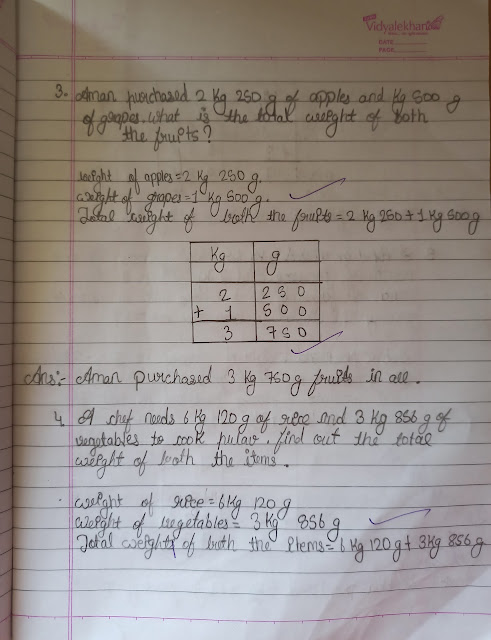 Vidyalekhan
DATE
PAGE
3. Aman purchased 2 Kg 250 g of apples and Kg 500 g
of grapes. what is the total weight of both
the fruits?
weight of apples=2 Kg 250 g.
weight of grapes=1 Kg 500 g.
Total weight of both the fruits=2 Kg 250+1 Kg 500g
Kg g
2 250
+ 1 500
3 750
Ans:- Aman purchased 3 Kg 750g fruits in all.
4. A chef needs 6 Kg 120 g of rice and 3 Kg 856 g of
vegetables to cook pulav. find out the total
weight of both the items.
weight of rice=6Kg 120 g
weight of vegetables= 3 Kg 856 g
Total weight of both the items=6 Kg 120 g+ 3Kg 856 g